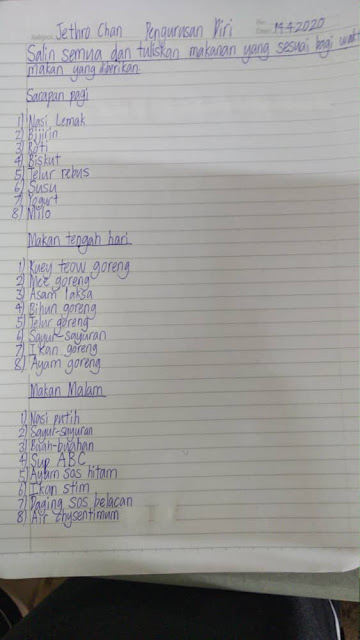 Jethro Chan Pengurusan Diri 14.4.2020
Salin semua dan tuliskan makanan yang sesuai bagi
makan yang diberikan
Sarapan pagi
1) Nasi Lemak
2) Bijirin
3) Roti
4) Biskut
5) Telur rebus
6) Susu
7) Yogurt
8) Milo
Makan tengah hari
1) Kuey teow goreng
2) Mee goreng
3) Asam laksa
4) Bihun goreng
5) Telur goreng
6) Sayur-sayuran
7) Ikan goreng
8) Ayam goreng
Makan Malam
1) Nasi putih
2) Sayur-sayuran
3) Buah-buahan
4) Sup ABC
5) Ayam sos hitam
6) Ikan stim
7) Daging sos belacan
8) Air